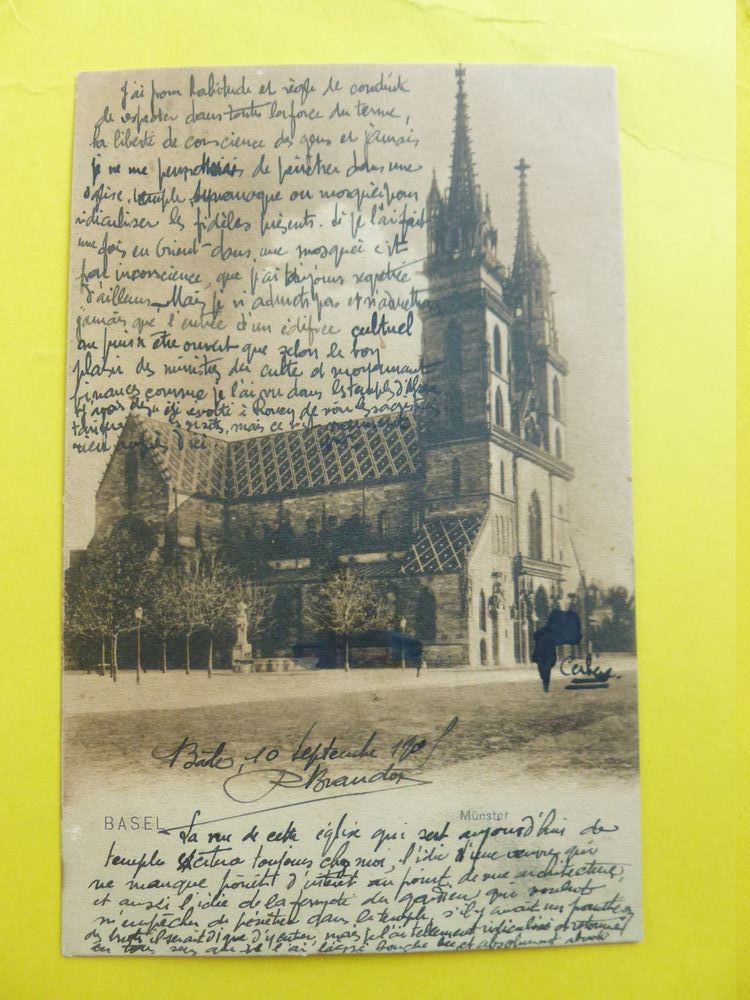 J'ai pour habitude et règle de conduite
de respecter dans toute la force du terme,
la liberté de conscience des gens et jamais
je ne me permettrais de pénétrer dans une
église, temple, synagogue ou mosquée pour
ridiculiser les fidèles présents. Si je l'ai fait
une fois en Orient dans une mosquée c'est
par inconscience, que j'ai toujours regrettée
d'ailleurs. Mais je n'admets pas et n'admettrai
jamais que l'entrée d'un édifice cultuel
ne puisse être ouvert que selon le bon
plaisir des ministres du culte et moyennant
finances comme je l'ai vu dans les temples d'
déjà été à Rouen de voir les
visites, mais ce
rien auprès d'ici
Cerbère.
Bâle, 10 Septembre 190
BASEL
Münster
La vue de cette église qui sert aujourd'hui de
temple toujours chez moi, l'idée d'une œuvre qui
ne manque point d'intérêt au point de vue architecture,
et aussi l'idée de la du gardien qui voulait
m'empêcher de pénétrer dans le temple, s'il y avait un
il serait digne d'y entrer, mais je l'ai tellement ridiculisé et retourné
en tous sens que je l'ai laissé bouche bée et absolument